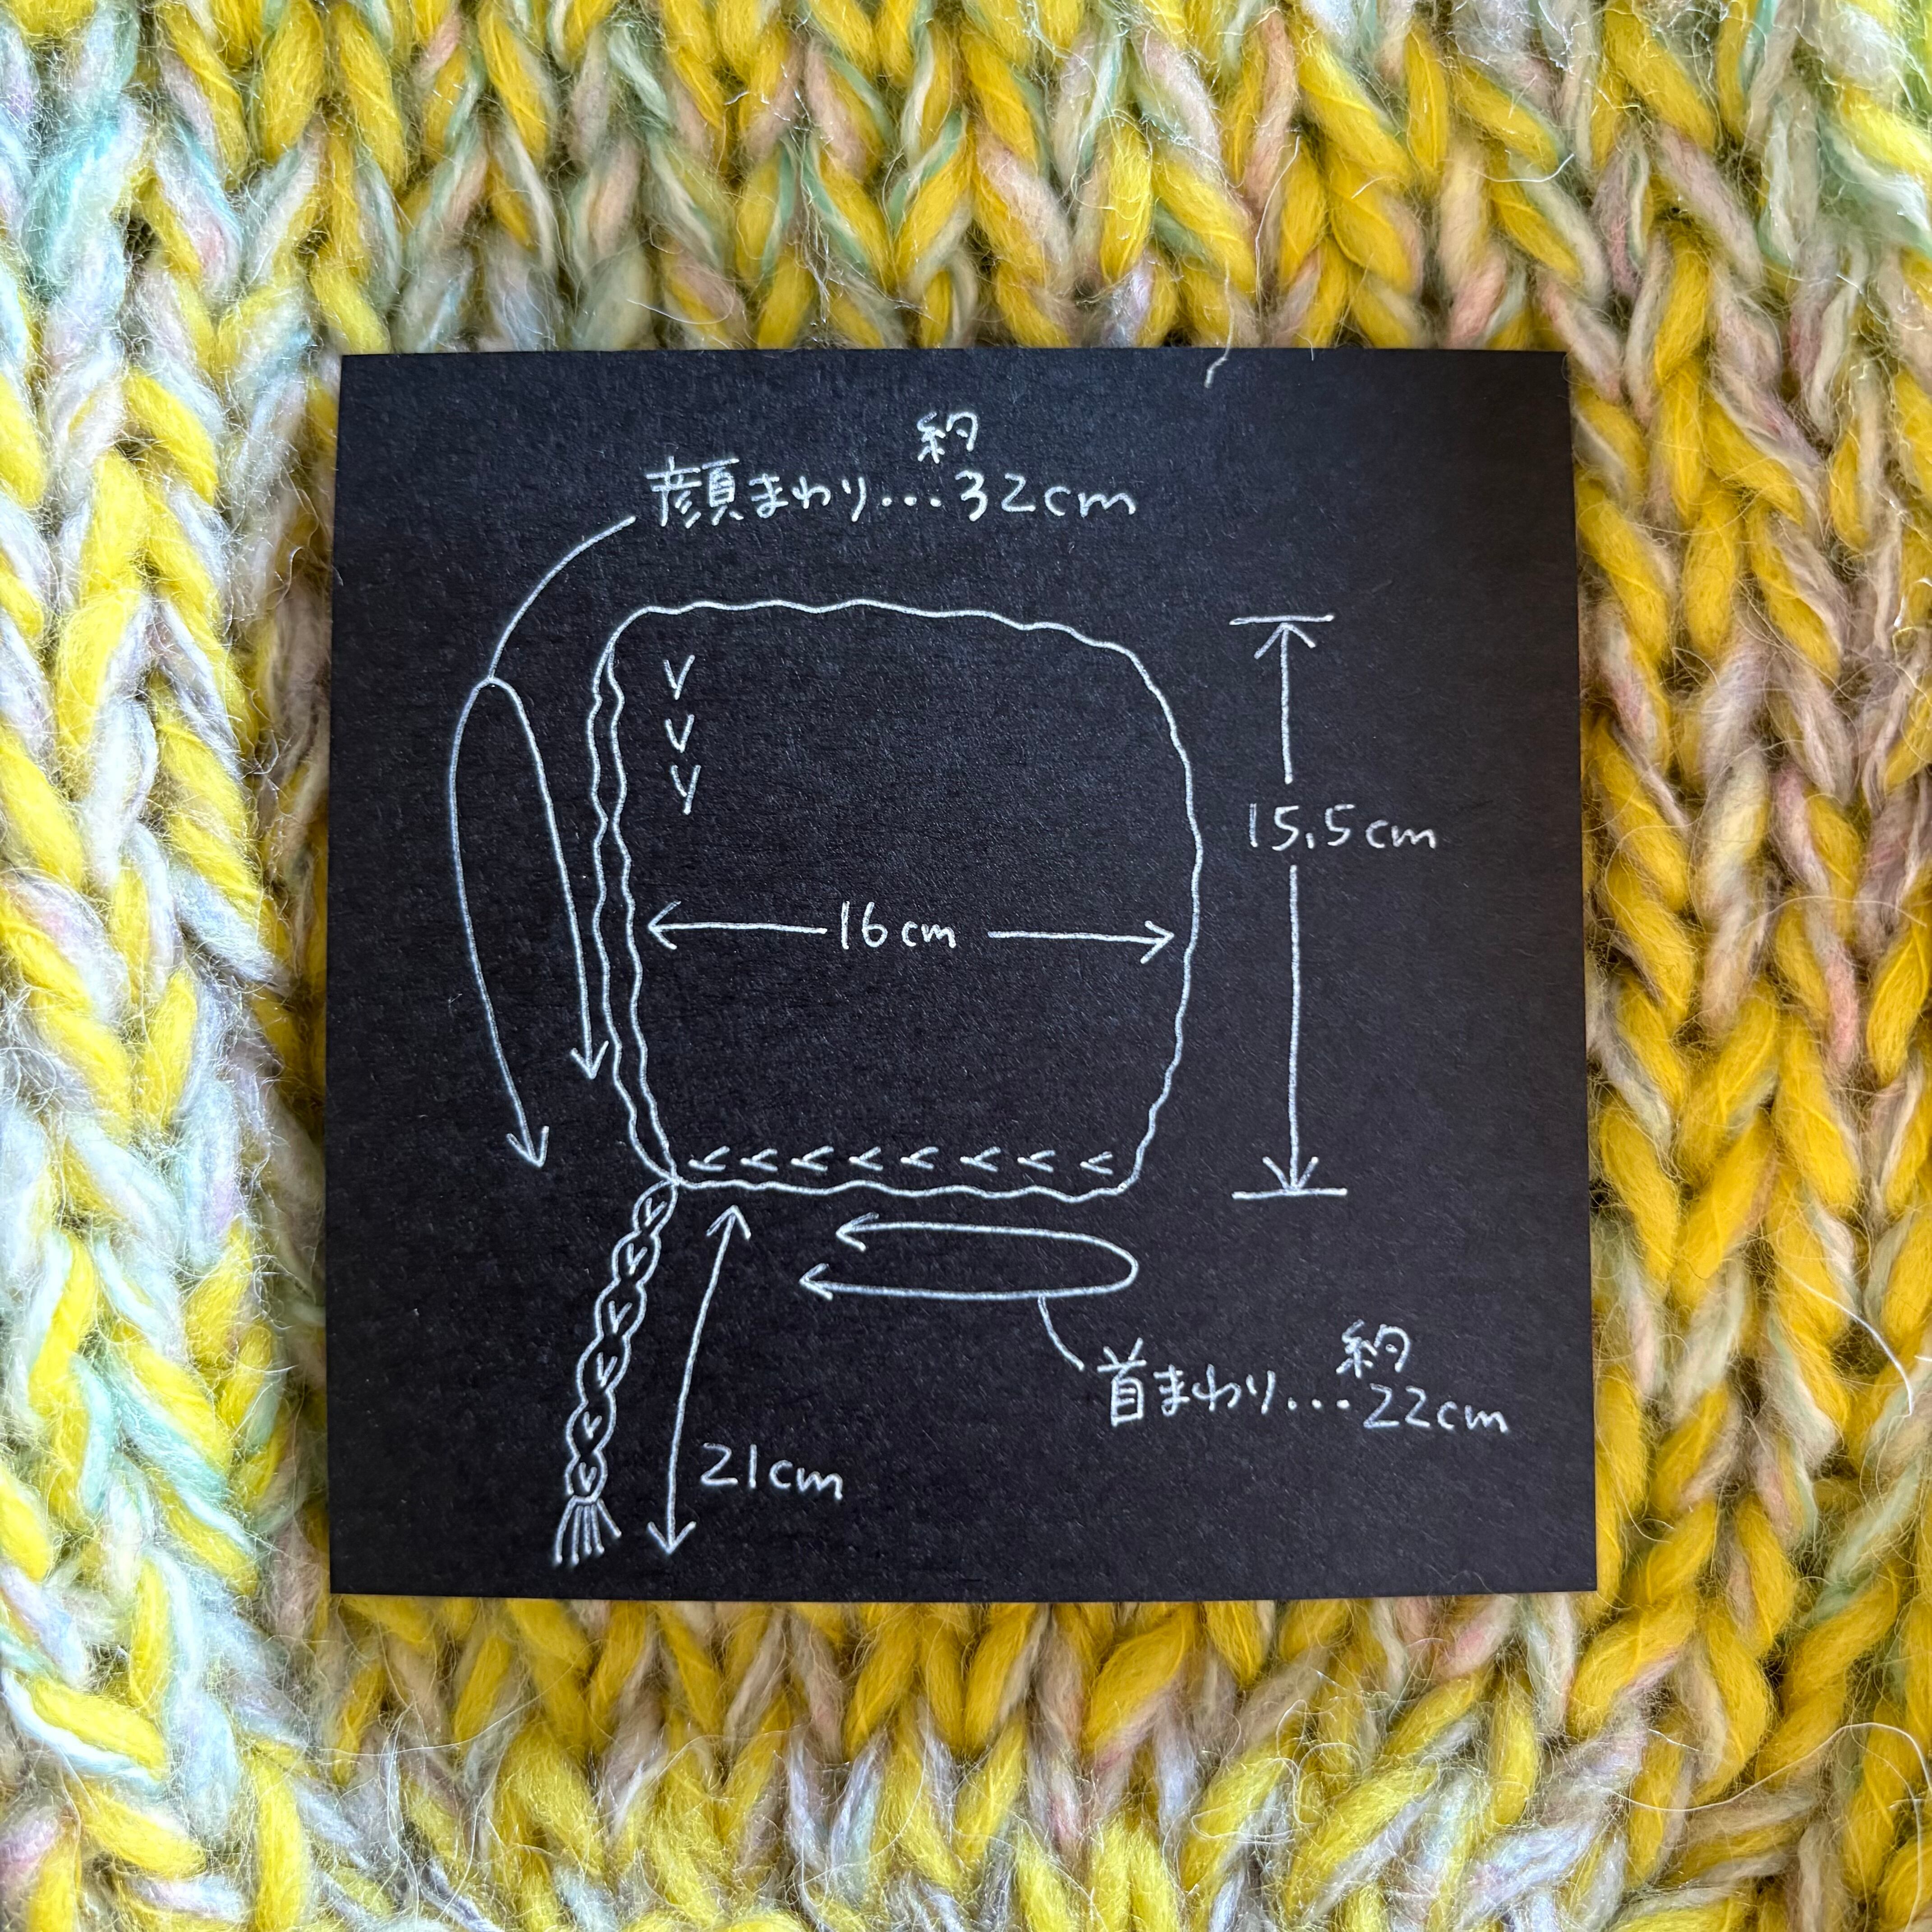 約
顔まわり...32cm
15.5cm
16cm
約
首まわり...22cm
21cm